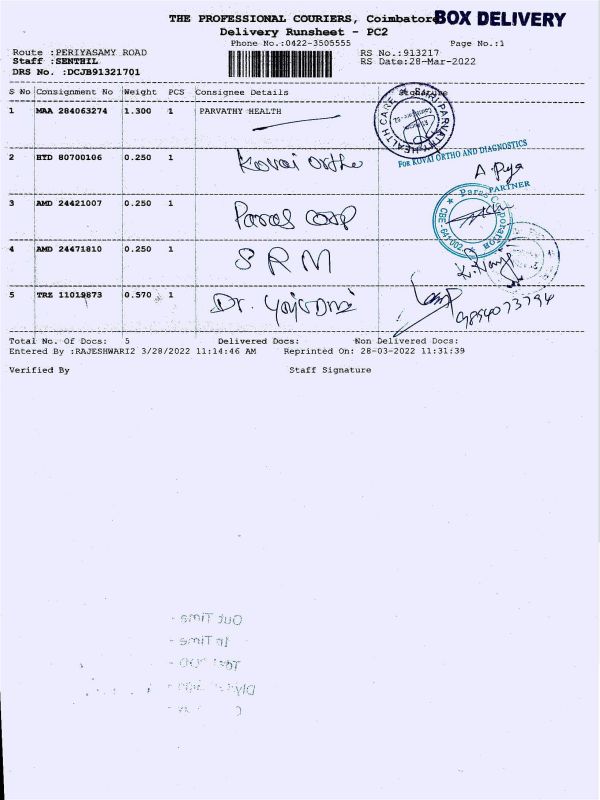 THE PROFESSIONAL COURIERS, Coimbatore BOX DELIVERY
Delivery Runsheet - PC2
Phone No.:0422-3505555 Page No.:1
Route :PERIYASAMY ROAD RS No.:913217
Staff :SENTHIL RS Date:28-Mar-2022
DRS No. :DCJB91321701
S No Consignment No Weight PCS Consignee Details
1 MAA 284063274 1.300 1 PARVATHY HEALTH
2 HYD 80700106 0.250 1 Kovai ortho
For KOVAI ORTHO AND DIAGNOSTICS
A. Priya
PARTNER
3 AMD 24421007 0.250 1 Paras corp
Paras Corporation CBE - 641 002
4 AMD 24471810 0.250 1 SRM
5 TRZ 11019873 0.570 1 Dr.
9894073794
Total No. Of Docs: 5 Delivered Docs: Non Delivered Docs:
Entered By :RAJESHWARI2 3/28/2022 11:14:46 AM Reprinted On: 28-03-2022 11:31:39
Verified By Staff Signature
Out Time -
In Time -